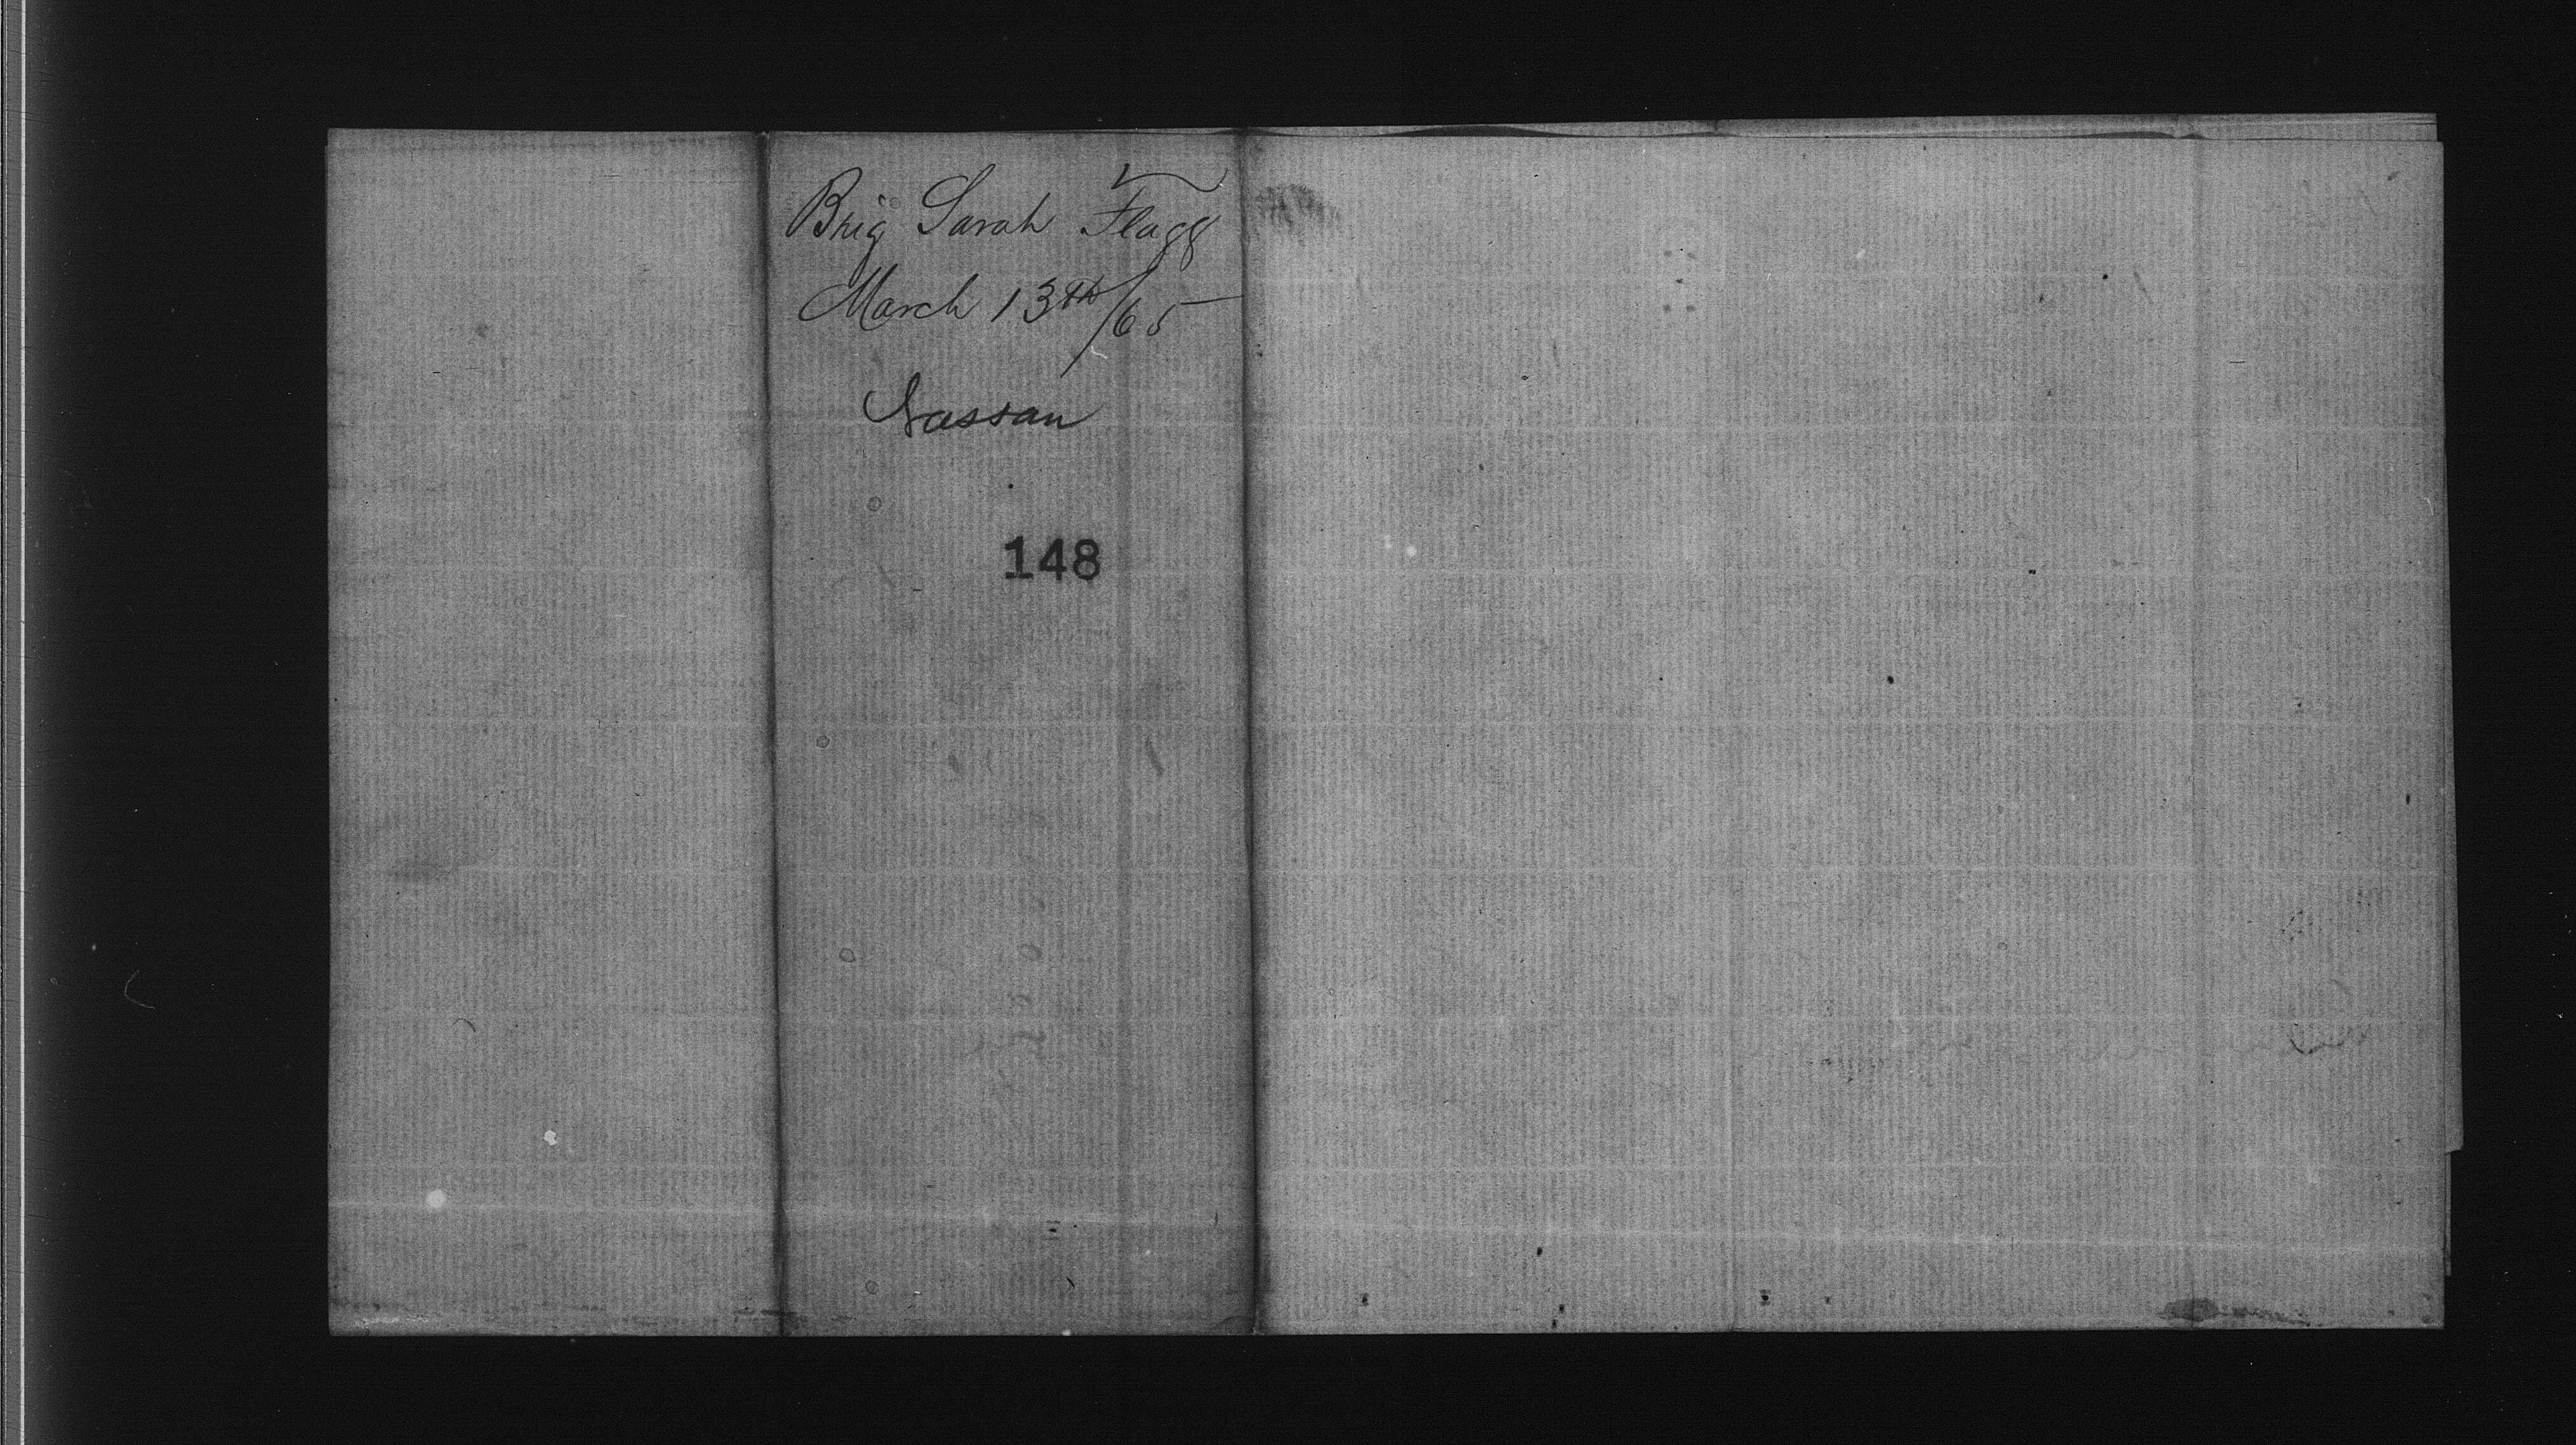 Brig Sarah Flagg
March 13th/65
Nassau
148